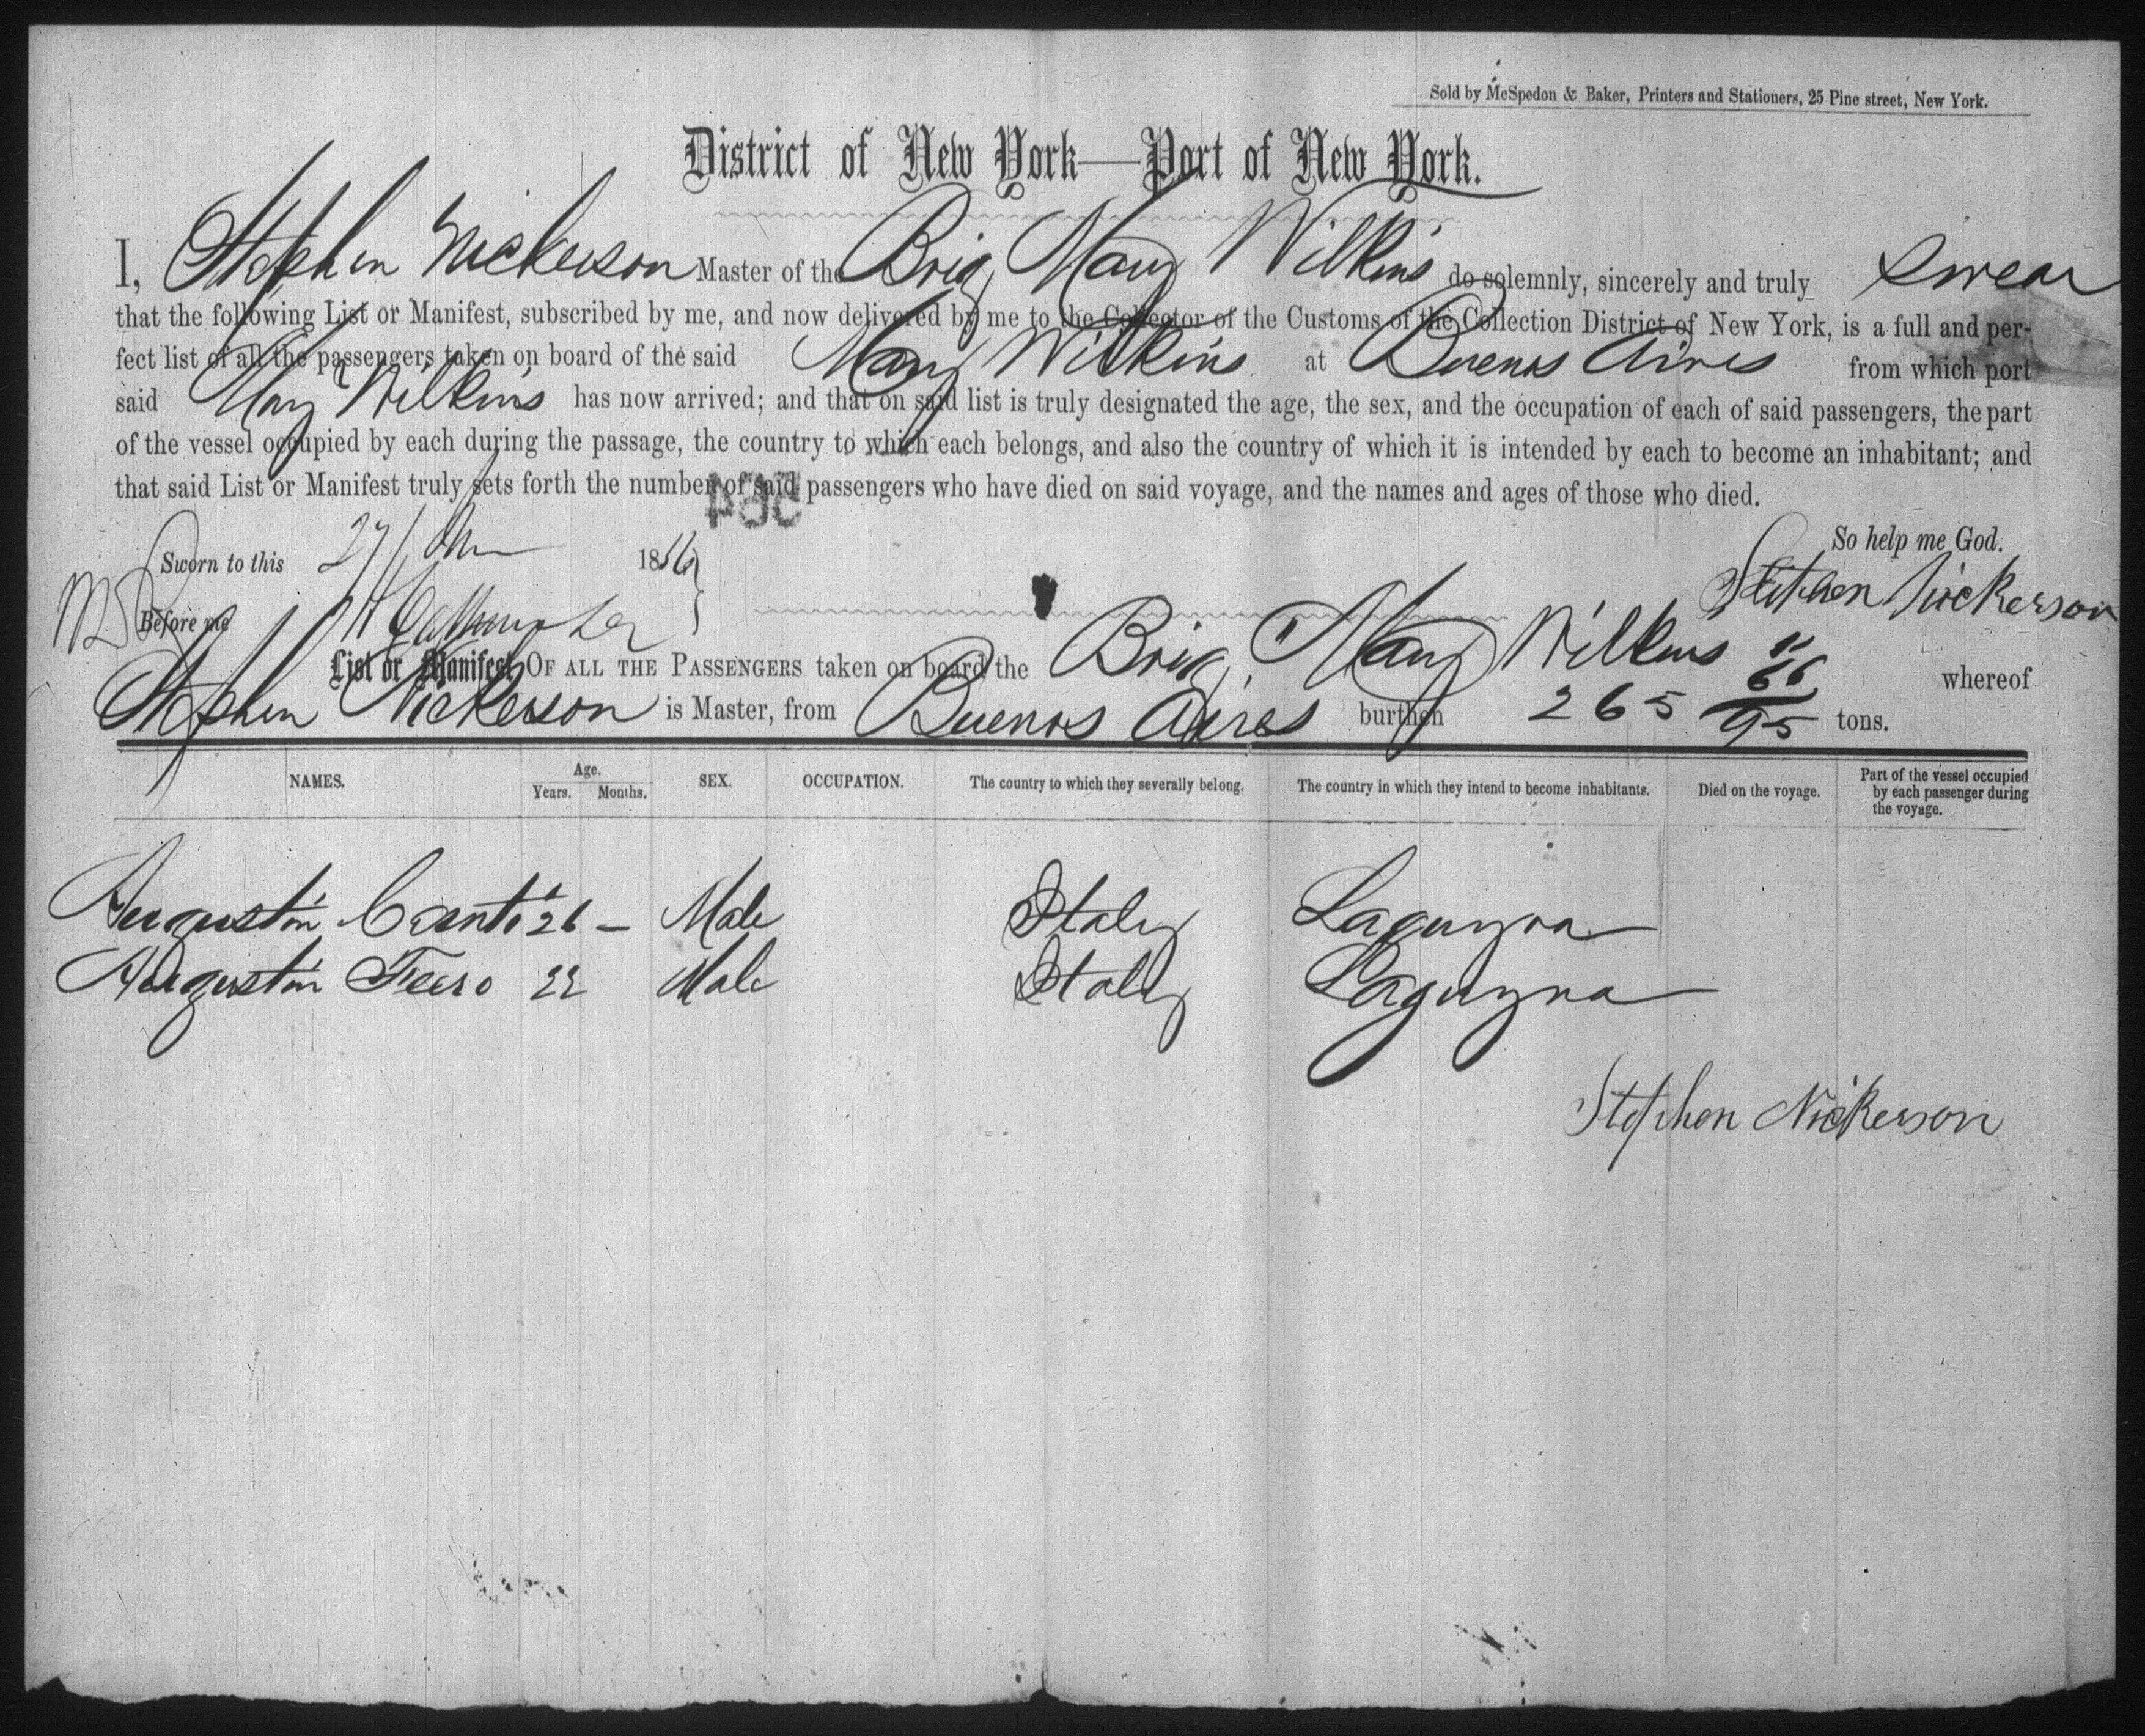 Sold by McSpedon & Baker, Printers and Stationers, 25 Pine street, New York.
District of New York—Port of New York.
I, Stephen Nickerson Master of the Brig Mary Wilkins do solemnly, sincerely and truly swear
that the following List or Manifest, subscribed by me, and now delivered by me to the Collector of the Customs of the Collection District of New York, is a full and per-
fect list of all the passengers taken on board of the said Mary Wilkins at Buenos Aires from which port
said Mary Wilkins has now arrived; and that on said list is truly designated the age, the sex, and the occupation of each of said passengers, the part
of the vessel occupied by each during the passage, the country to which each belongs, and also the country of which it is intended by each to become an inhabitant; and
that said List or Manifest truly sets forth the number of said passengers who have died on said voyage, and the names and ages of those who died.
So help me God.
Sworn to this 27 1856
Stephen Nickerson
Before me
List or Manifest OF ALL THE PASSENGERS taken on board the Brig "Mary Wilkins" whereof
Stephen Nickerson is Master, from Buenos Aires burthen 265 66/95 tons.
NAMES. Age. Years. Months. SEX. OCCUPATION. The country to which they severally belong. The country in which they intend to become inhabitants. Died on the voyage. Part of the vessel occupied by each passenger during the voyage.
Augustin 26 – Male Italy Laguyra
Augustin 22 Male Italy Laguyra
Stephen Nickerson